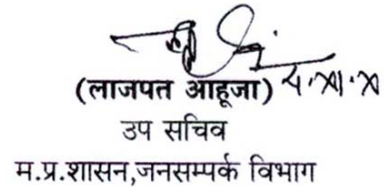 (लाजपत आहूजा)
उप सचिव
म.प्र.शासन,जनसम्पर्क विभाग